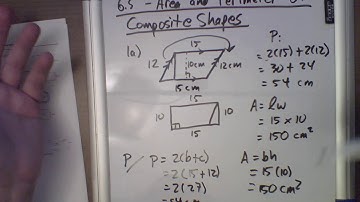 6.5 - Area and Perimeter of
Composite Shapes
1a)
15
12
10cm
12cm
15 cm
15
10
10
15
P:
= 2(15) + 2(12)
= 30 + 24
= 54 cm
A = lw
= 15 x 10
= 150 cm²
P/ P = 2(b+c)
= 2(15+12)
= 2(27)
= 54 cm
A = bh
= 15(10)
= 150 cm²